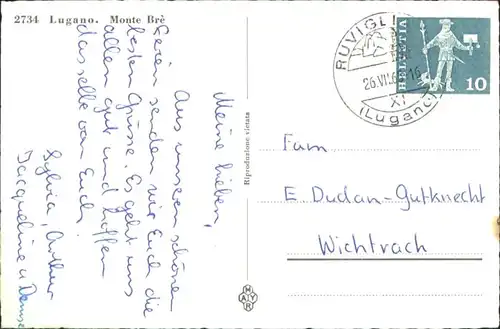 2734 Lugano. Monte Brè
Meine Lieben,
Aus unseren schönen
Ferien senden wir Euch die
besten Grüsse. Es geht uns
allen gut und hoffen
dasselbe von Euch.
Sylvia, Arthur
Jacqueline u Denise
Riproduzione vietata
MAYR
RUVIGLI
26.VII.6 -16
XI
(Lugano)
HELVETIA
10
Fam
E. Dudan-Gutknecht
Wichtrach